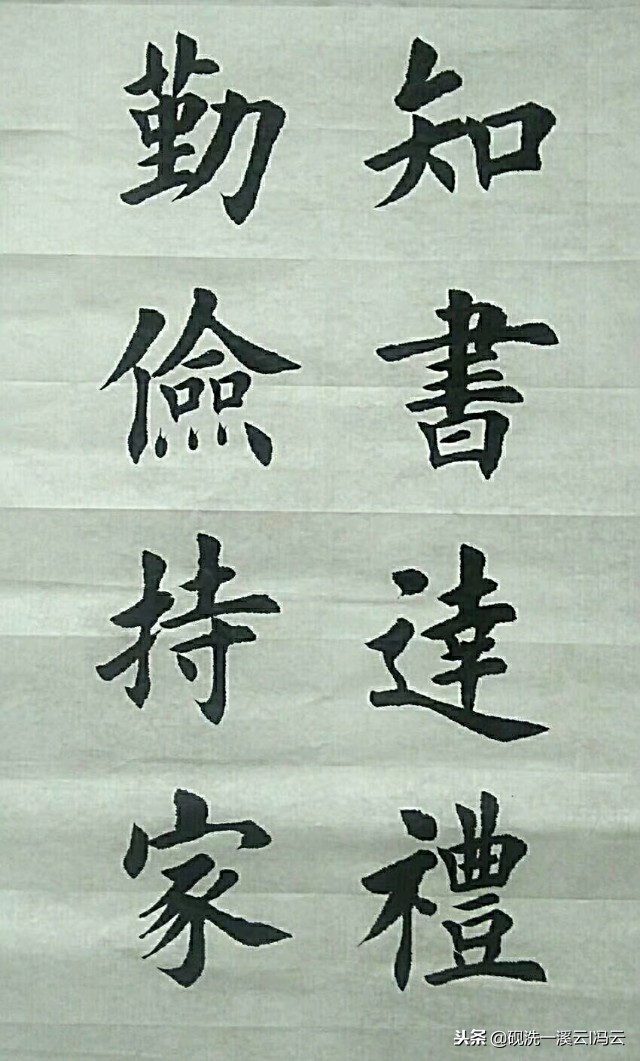 知書達禮
勤儉持家
头条 @砚洗一溪云I冯云